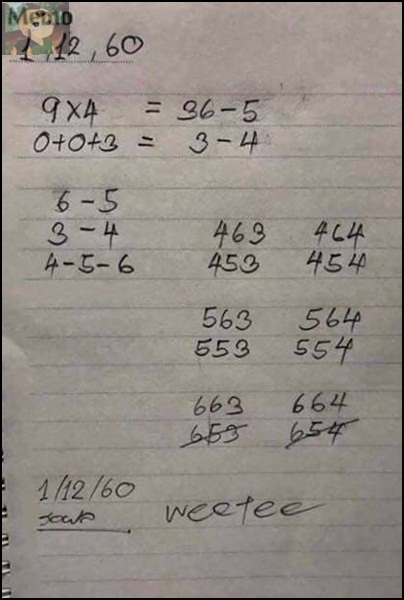 Memo
1,12,60
9×4 = 36-5
0+0+3 = 3-4
6-5
3-4
4-5-6
463 464
453 454
563 564
553 554
663 664
653 654
1/12/60
weetee